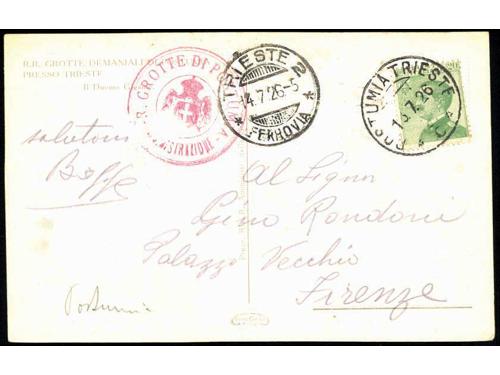 R.R. GROTTE DEMANIALI DI
PRESSO TRIESTE
Il Duomo
R.R. GROTTE DI PO
TRIESTE 2
14.7.26-5
* FERROVIA *
POSTUMIA TRIESTE
7.26
20
saluton
Al Signor
Gino Rondoni
Palazzo Vecchio
Firenze
Postumia